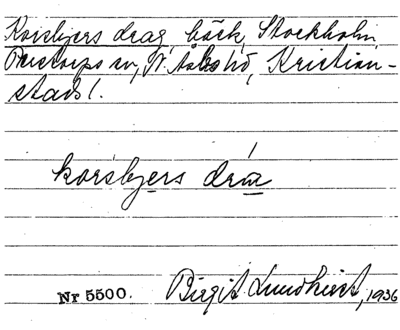 Korsbjers drag, bäck, Stockholm
Perstorps sn, N. Åsbo hd, Kristian-
stads l.
korsbjers drág
Nr 5500. Birgit Lundkvist, 1936